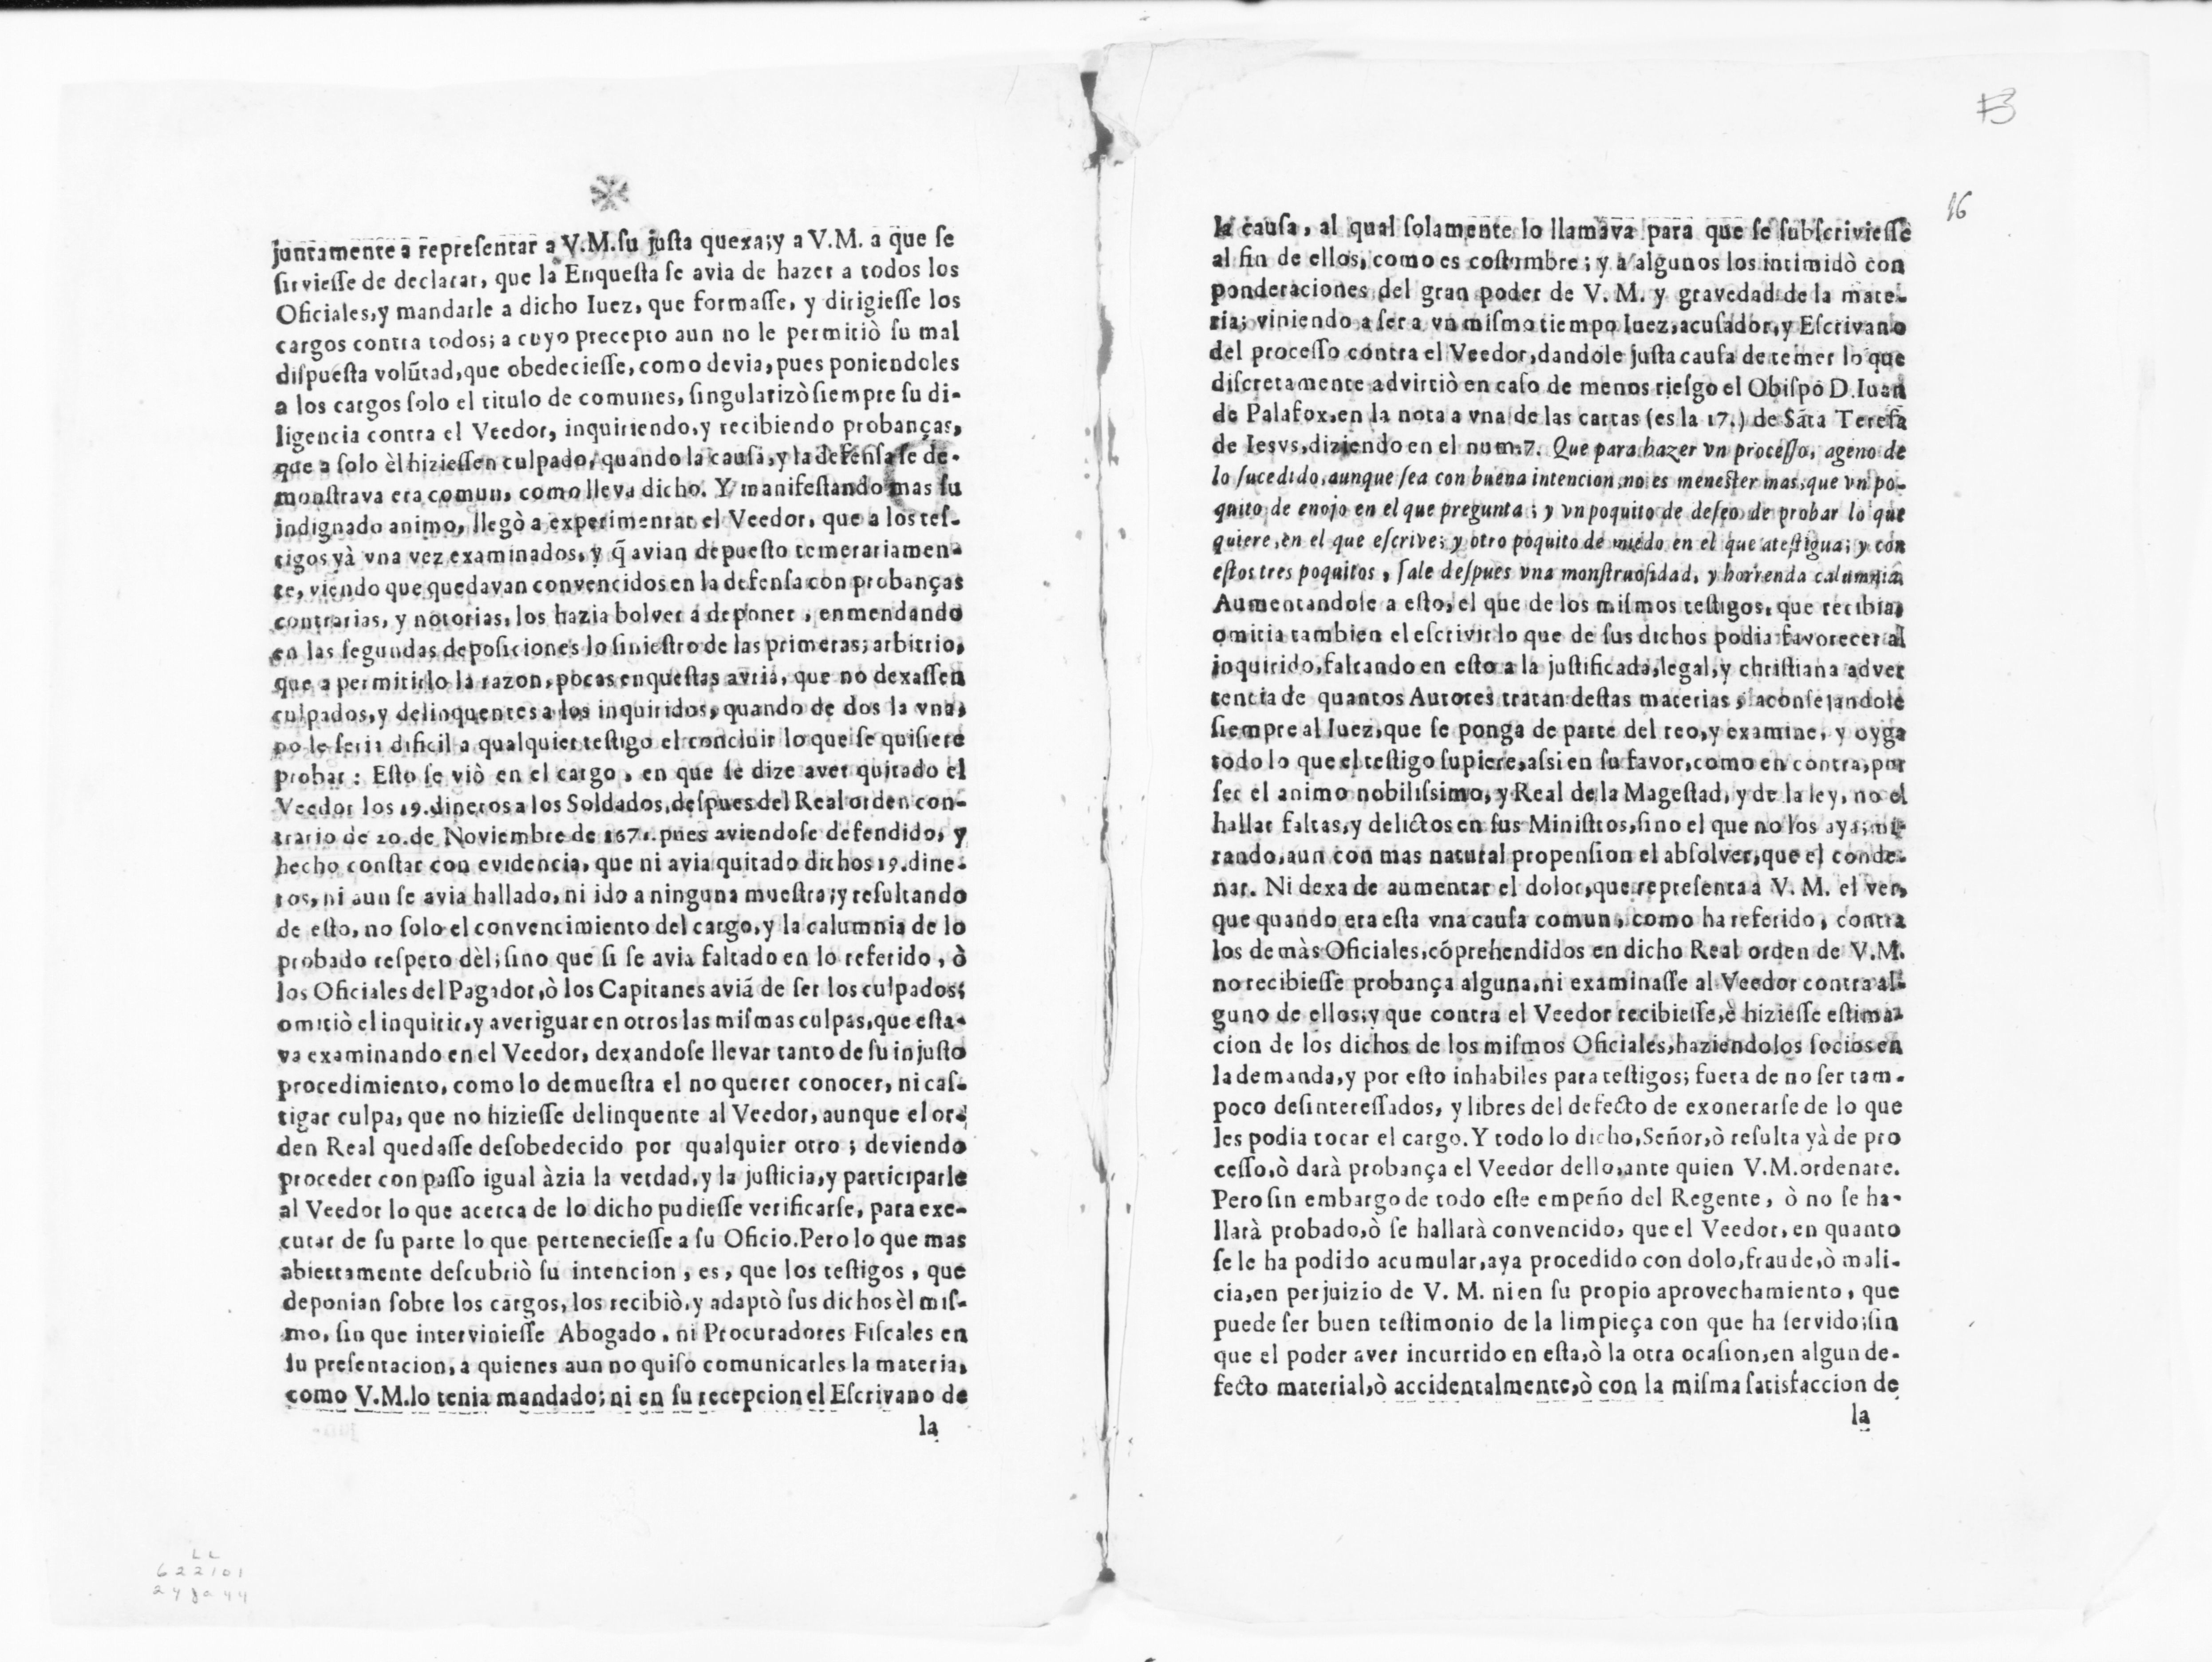 juntamente a representar a V.M. su justa quexa; y a V.M. a que se
sirviesse de declarar, que la Enquesta se avia de hazer a todos los
Oficiales, y mandarle a dicho Iuez, que formasse, y dirigiesse los
cargos contra todos; a cuyo precepto aun no le permitiò su mal
dispuesta volũtad, que obedeciesse, como devia, pues poniendoles
a los cargos solo el titulo de comunes, singularizò siempre su di-
ligencia contra el Veedor, inquiriendo, y recibiendo probanças,
que a solo èl hiziessen culpado, quando la causa, y la defensa se de-
monstrava era comun, como lleva dicho. Y manifestando mas su
indignado animo, llegò a experimentar el Veedor, que a los tes-
tigos yà vna vez examinados, y q̃ avian depuesto temerariamen-
te, viendo que quedavan convencidos en la defensa con probanças
contrarias, y notorias, los hazia bolver a deponer, enmendando
en las segundas deposiciones lo siniestro de las primeras; arbitrio,
que a permitirlo la razon, pocas enquestas avria, que no dexassen
culpados, y delinquentes a los inquiridos, quando de dos la vna,
no le seria dificil a qualquier testigo el concluir lo que se quisiere
probar: Esto se viò en el cargo, en que se dize aver quitado el
Veedor los 19. dineros a los Soldados, despues del Real orden con-
trario de 20. de Noviembre de 1671. pues aviendose defendido, y
hecho constar con evidencia, que ni avia quitado dichos 19. dine-
ros, ni aun se avia hallado, ni ido a ninguna muestra; y resultando
de esto, no solo el convencimiento del cargo, y la calumnia de lo
probado respeto dèl; sino que si se avia faltado en lo referido, ò
los Oficiales del Pagador, ò los Capitanes aviã de ser los culpados;
omitiò el inquirir, y averiguar en otros las mismas culpas, que esta-
va examinando en el Veedor, dexandose llevar tanto de su injusto
procedimiento, como lo demuestra el no querer conocer, ni cas-
tigar culpa, que no hiziesse delinquente al Veedor, aunque el or-
den Real quedasse desobedecido por qualquier otro; deviendo
proceder con passo igual àzia la verdad, y la justicia, y participarle
al Veedor lo que acerca de lo dicho pudiesse verificarse, para exe-
cutar de su parte lo que perteneciesse a su Oficio. Pero lo que mas
abiertamente descubriò su intencion, es, que los testigos, que
deponian sobre los cargos, los recibiò, y adaptò sus dichos èl mis-
mo, sin que interviniesse Abogado, ni Procuradores Fiscales en
su presentacion, a quienes aun no quiso comunicarles la materia,
como V.M. lo tenia mandado; ni en su recepcion el Escrivano de
la
LL
622101
16
la causa, al qual solamente lo llamava para que se subscriviesse
al fin de ellos, como es costumbre; y a algunos los intimidò con
ponderaciones del gran poder de V. M. y gravedad de la mate-
ria; viniendo a ser a vn mismo tiempo Iuez, acusador, y Escrivano
del processo contra el Veedor, dandole justa causa de temer lo que
discretamente advirtiò en caso de menos riesgo el Obispo D. Iuan
de Palafox, en la nota a vna de las cartas (es la 17.) de Sãta Teresa
de Iesvs, diziendo en el num. 7. Que para hazer vn processo, ageno de
lo sucedido, aunque sea con buena intencion, no es menester mas, que vn po-
quito de enojo en el que pregunta; y vn poquito de deseo de probar lo que
quiere, en el que escrive; y otro poquito de miedo en el que atestigua; y con
estos tres poquitos, sale despues vna monstruosidad, y horrenda calumnia.
Aumentandole a esto, el que de los mismos testigos, que recibia,
omitia tambien el escrivir lo que de sus dichos podia favorecer al
inquirido, faltando en esto a la justificada, legal, y christiana adver
tencia de quantos Autores tratan destas materias, aconsejandole
siempre al Iuez, que se ponga de parte del reo, y examine, y oyga
todo lo que el testigo supiere, assi en su favor, como en contra, por
ser el animo nobilissimo, y Real de la Magestad, y de la ley, no el
hallar faltas, y delictos en sus Ministros, sino el que no los aya; mi-
rando, aun con mas natural propension el absolver, que el conde-
nar. Ni dexa de aumentar el dolor, que representa a V. M. el ver,
que quando era esta vna causa comun, como ha referido, contra
los demàs Oficiales, cõprehendidos en dicho Real orden de V.M.
no recibiesse probança alguna, ni examinasse al Veedor contra al-
guno de ellos; y que contra el Veedor recibiesse, è hiziesse estima-
cion de los dichos de los mismos Oficiales, haziendolos socios en
la demanda, y por esto inhabiles para testigos; fuera de no ser tam-
poco desinteressados, y libres del defecto de exonerarse de lo que
les podia tocar el cargo. Y todo lo dicho, Señor, ò resulta yà de pro
cesso, ò darà probança el Veedor dello, ante quien V.M. ordenare.
Pero sin embargo de todo este empeño del Regente, ò no se ha-
llarà probado, ò se hallarà convencido, que el Veedor, en quanto
se le ha podido acumular, aya procedido con dolo, fraude, ò mali-
cia, en perjuizio de V. M. ni en su propio aprovechamiento, que
puede ser buen testimonio de la limpieça con que ha servido; sin
que el poder aver incurrido en esta, ò la otra ocasion, en algun de-
fecto material, ò accidentalmente, ò con la misma satisfaccion de
la